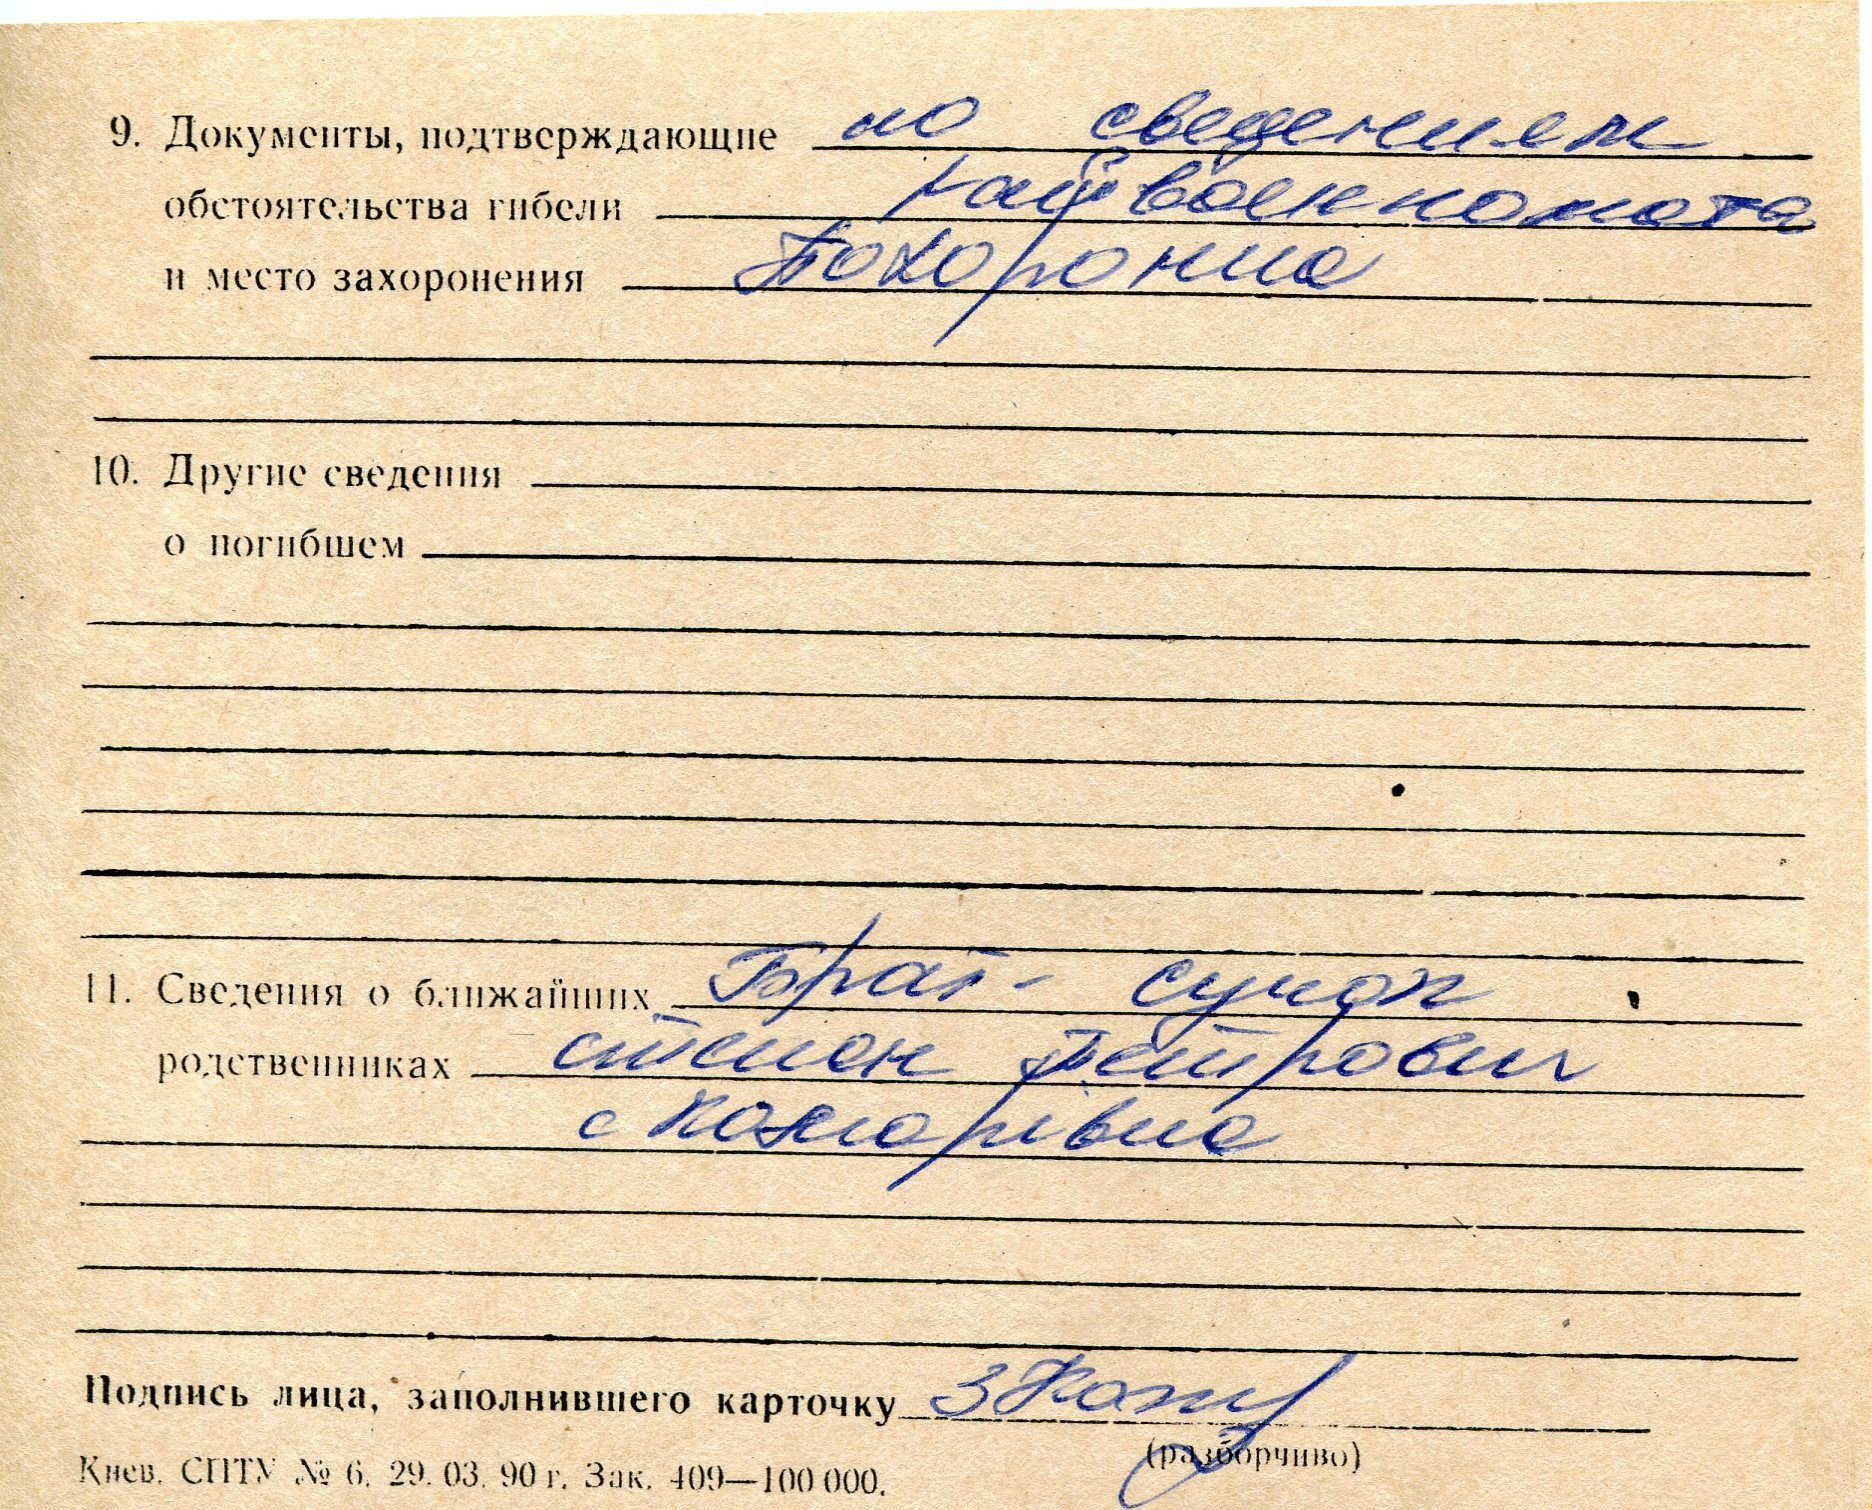 9. Документы, подтверждающие по сведениям
обстоятельства гибели райвоенкомата
и место захоронения Похоронка
10. Другие сведения
о погибшем
11. Сведения о ближайших Брат -
родственниках степан Петрович
с Комарівка
Подпись лица, заполнившего карточку
(разборчиво)
Киев. СПТУ № 6. 29. 03. 90 г. Зак. 409—100 000.